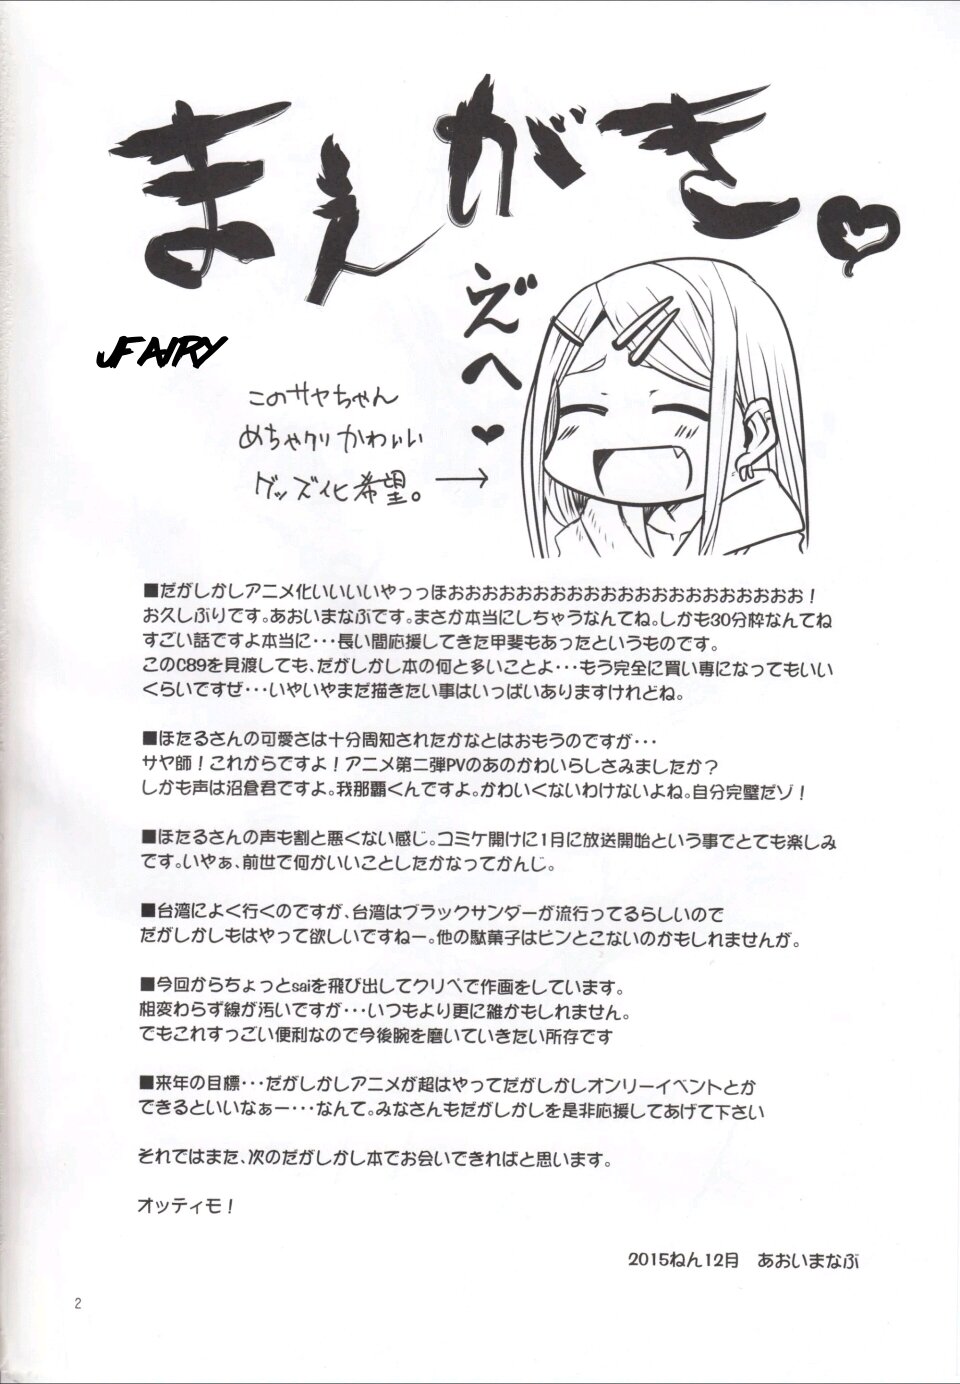 まえがき
えへ゛
JFAIRY
このサヤちゃん
めちゃクソかわいい
グッズ化希望。
■だがしかしアニメ化いいいいやっっほおおおおおおおおおおおおおおおおおおおおお！
お久しぶりです。あおいまなぶです。まさか本当にしちゃうなんてね。しかも30分枠なんてね
すごい話ですよ本当に・・・長い間応援してきた甲斐もあったというものです。
このC89を見渡しても、だがしかし本の何と多いことよ・・・もう完全に買い専になってもいい
くらいですぜ・・・いやいやまだ描きたい事はいっぱいありますけれどね。
■ほたるさんの可愛さは十分周知されたかなとはおもうのですが・・・
サヤ師！これからですよ！アニメ第二弾PVのあのかわいらしさみましたか？
しかも声は沼倉君ですよ。我那覇くんですよ。かわいくないわけないよね。自分完璧だゾ！
■ほたるさんの声も割と悪くない感じ。コミケ開けに1月に放送開始という事でとても楽しみ
です。いやぁ、前世で何かいいことしたかなってかんじ。
■台湾によく行くのですが、台湾はブラックサンダーが流行ってるらしいので
だがしかしもはやって欲しいですねー。他の駄菓子はピンとこないのかもしれませんが。
■今回からちょっとsaiを飛び出してクリペで作画をしています。
相変わらず線が汚いですが・・・いつもより更に雑かもしれません。
でもこれすっごい便利なので今後腕を磨いていきたい所存です
■来年の目標・・・だがしかしアニメが超はやってだがしかしオンリーイベントとか
できるといいなぁー・・・なんて。みなさんもだがしかしを是非応援してあげて下さい
それではまた、次のだがしかし本でお会いできればと思います。
オッティモ！
2015ねん12月　あおいまなぶ
2